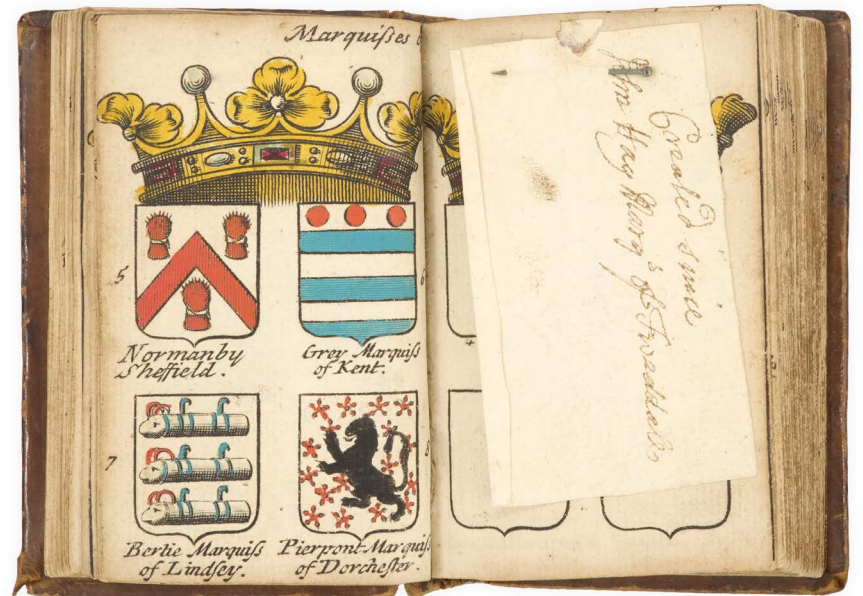 Marquiſses
5
Normanby
Sheffield.
6
Grey Marquiſs
of Kent.
7
Bertie Marquiſs
of Lindſey.
8
Pierpont Marquiſs
of Dorcheſter.
Created since
John Hay Marqs of Tweeddale